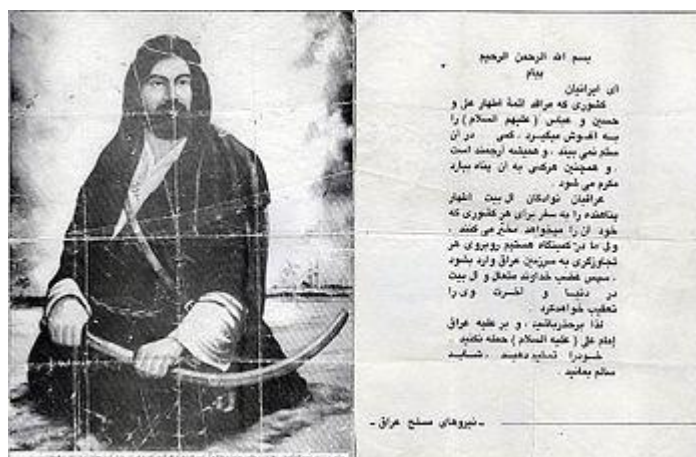 بسم الله الرحمن الرحیم
پیام
ای ایرانیان
کشوری که مراقد ائمهٔ اطهار علی و
حسین و عباس (علیهم السلام) را
به آغوش میگیرد، کسی در آن
ستم نمی بیند، و همیشه ارجمند است
، و همچنین هرکس به آن پناه بیارد
مکرم می شود.
عراقیان نوادگان آل بیت اطهار
پناهنده را به سفر برای هر کشوری که
خود آن را میخواهد مخیّر می کنند،
ولی ما در کمینگاه هستیم روبروی هر
تجاوزگری به سرزمین عراق وارد بشود
، سپس غضب خداوند متعال و آل بیت
در دنیا و آخرت وی را
تعقیب خواهدکرد.
لذا برحذرباشید، و بر علیه عراق
إمام علی (علیه السلام) حمله نکنید.
خودرا تسلیم‌دهید، شاید
سالم بمانید.
- نیروهای مسلح عراق -